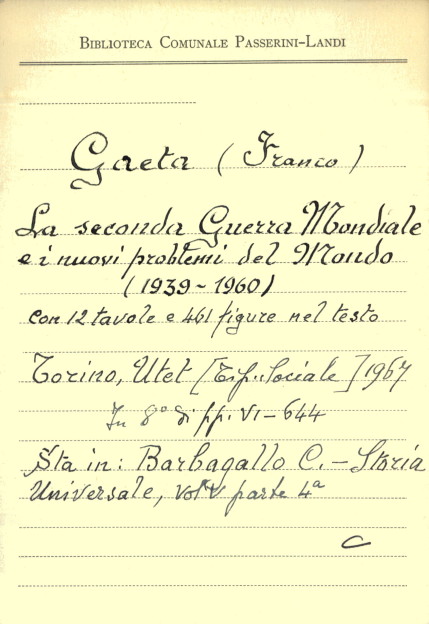 BIBLIOTECA COMUNALE PASSERINI-LANDI
Gaeta (Franco)
La seconda Guerra Mondiale
e i nuovi problemi del Mondo
(1939-1960)
con 12 tavole e 461 figure nel testo
Torino, Utet [Tip. Sociale] 1967
In 8° di pp. VI-644
Sta in: Barbagallo C. - Storia
Universale, vol. V parte 4ª
C